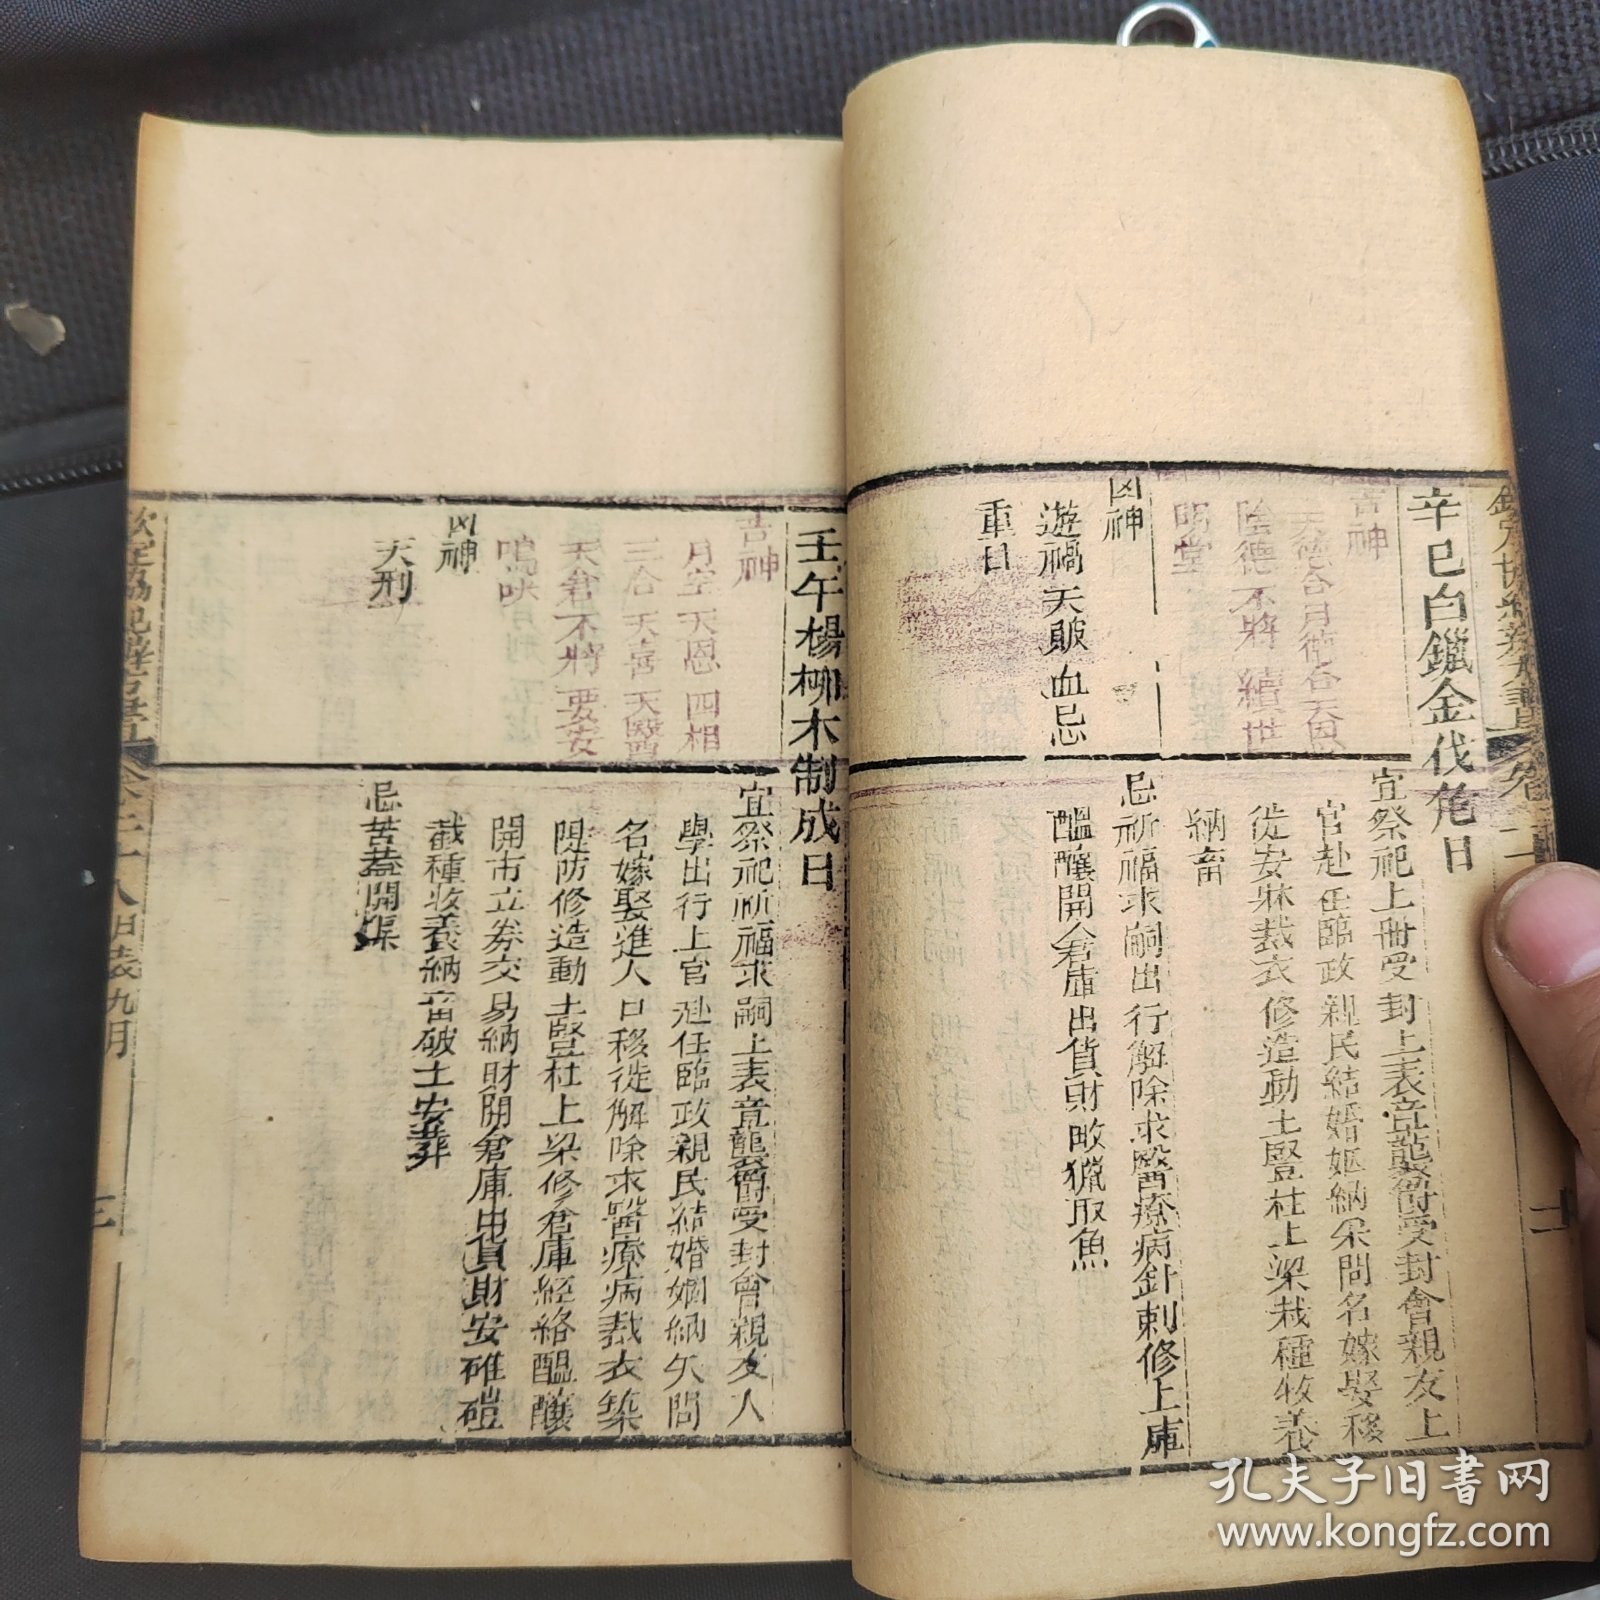 辛巳白鑞金伐危日
吉神
天德合月德合天恩
陰德不將 續世
明堂
凶神
遊禍天賊血忌
重日
宜祭祀上冊受封上表章襲爵受封會親友上
官赴任臨政親民結婚姻納采問名嫁娶移
徙安牀裁衣修造動土豎柱上梁栽種牧養
納畜
忌祈福求嗣出行解除求醫療病針刺修上庫
醞釀開倉庫出貨財畋獵取魚
二
壬午楊柳木制成日
吉神
月空天恩四相
三合天喜天醫
天倉不將要安
鳴吠
凶神
天刑
宜祭祀祈福求嗣上表章襲爵受封會親友人
學出行上官赴任臨政親民結婚姻納采問
名嫁娶進人口移徙解除求醫療病裁衣築
隄防修造動土豎柱上梁修倉庫經絡醞釀
開市立券交易納財開倉庫出貨財安碓磑
栽種牧養納畜破土安葬
忌苫蓋開渠
欽定協紀辨方書 卷二十八日表九月
三
孔夫子旧书网
www.kongfz.com